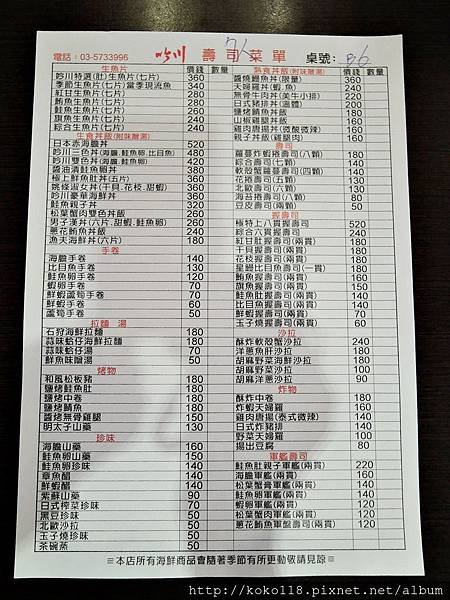 電話：03-5733996 吟川 壽司菜單 桌號： B6
生魚片 價錢 數量
吟川特選(肚)生魚片(七片) 360
季節生魚片(七片)當季現流魚 340
紅甘生魚片(七片) 280
鮪魚生魚片(七片) 280
鮭魚生魚片(七片) 260
旗魚生魚片(七片) 240
綜合生魚片(七片) 240
生食丼飯(附味醂湯)
日本赤海膽丼 520
吟川三色丼(海膽.鮭魚卵.比目魚) 480
吟川雙色丼(海膽.鮭魚卵) 420
醬油漬鮭魚卵丼 380
極上鮮魚肚丼(五片) 360
姚條淑女丼(干貝.花枝.甜蝦) 360
吟川豪華海鮮丼 360
鮭魚親子丼 320
松葉蟹肉雙色丼飯 260
男子漢丼(六片.甜蝦.鮭魚卵) 260
蔥花鮪魚丼飯 240
漁夫海鮮丼(六片) 180
手卷
海膽手卷 140
比目魚手卷 130
鮭魚卵手卷 120
蝦卵手卷 70
鮮蝦蘆筍手卷 70
鮮蝦手卷 60
蘆筍手卷 50
拉麵 湯
石狩海鮮拉麵 180
蒜味蛤仔海鮮拉麵 180
蒜味蛤仔湯 70
鮮魚味噌湯 50
烤物
和風松板豬 180
鹽烤鮭魚肚 180
鹽烤中卷 180
鹽烤鯖魚 180
醬烤無骨雞腿 150
明太子山藥 130
珍味
海膽山藥 160
鮭魚卵山藥 150
鮭魚卵珍味 140
章魚醋 140
鮮蝦醋 140
紫蘇山藥 90
日式榨菜珍味 70
黑豆珍味 50
北歐沙拉 50
玉子燒珍味 50
茶碗蒸 50
熟食丼飯(附味醂湯) 價錢 數量
醬燒鰻魚丼(限量) 360
天婦羅丼(蝦.魚) 240
無骨牛肉丼(美生小排) 220
日式豬排丼(溫體) 200
鹽燒鯖魚丼飯 180
山椒雞腿丼飯 180
雞肉唐揚丼(微酸微辣) 160
親子丼飯(雞腿肉) 160
壽司
蘿蔓炸蝦捲壽司(八顆) 180
綜合花捲壽司(八顆) 130
軟殼蟹蘿蔓壽司(四顆) 140
花捲壽司(五顆) 130
北歐壽司(六顆) 130
海苔捲壽司(八顆) 80
豆皮壽司(兩顆) 50
握壽司
極特上八貫握壽司 520
綜合六貫握壽司 240
紅甘肚握壽司(兩貫) 180
干貝握壽司(兩貫) 180
花枝握壽司(兩貫) 180
星鰻比目魚壽司(一貫) 180
鮪魚握壽司(兩貫) 160
旗魚握壽司(兩貫) 150
鮭魚肚握壽司(兩貫) 140
鮭魚握壽司(兩貫) 100
鮮蝦握壽司(兩貫) 70
玉子燒握壽司(兩貫) 60
沙拉
酥炸軟殼蟹沙拉 240
洋蔥魚肝沙拉 180
胡麻野菜海鮮沙拉 180
胡麻野菜沙拉 100
胡麻洋蔥沙拉 90
炸物
酥炸中卷 180
炸蝦天婦羅 180
雞肉唐揚(泰式微辣) 140
日式炸豬排 140
野菜天婦羅 100
揚出豆腐 80
軍艦壽司
鮭魚肚親子軍艦(兩貫) 220
海膽軍艦(兩貫) 160
松葉蟹膏軍艦(兩貫) 140
鮭魚卵軍艦(兩貫) 140
蝦卵軍艦(兩貫) 120
松葉蟹肉軍艦(兩貫) 120
蔥花鮪魚軍盤壽司(兩貫) 120
※本店所有海鮮商品會隨著季節有所更動敬請見諒※
http://koko118.pixnet.net/album